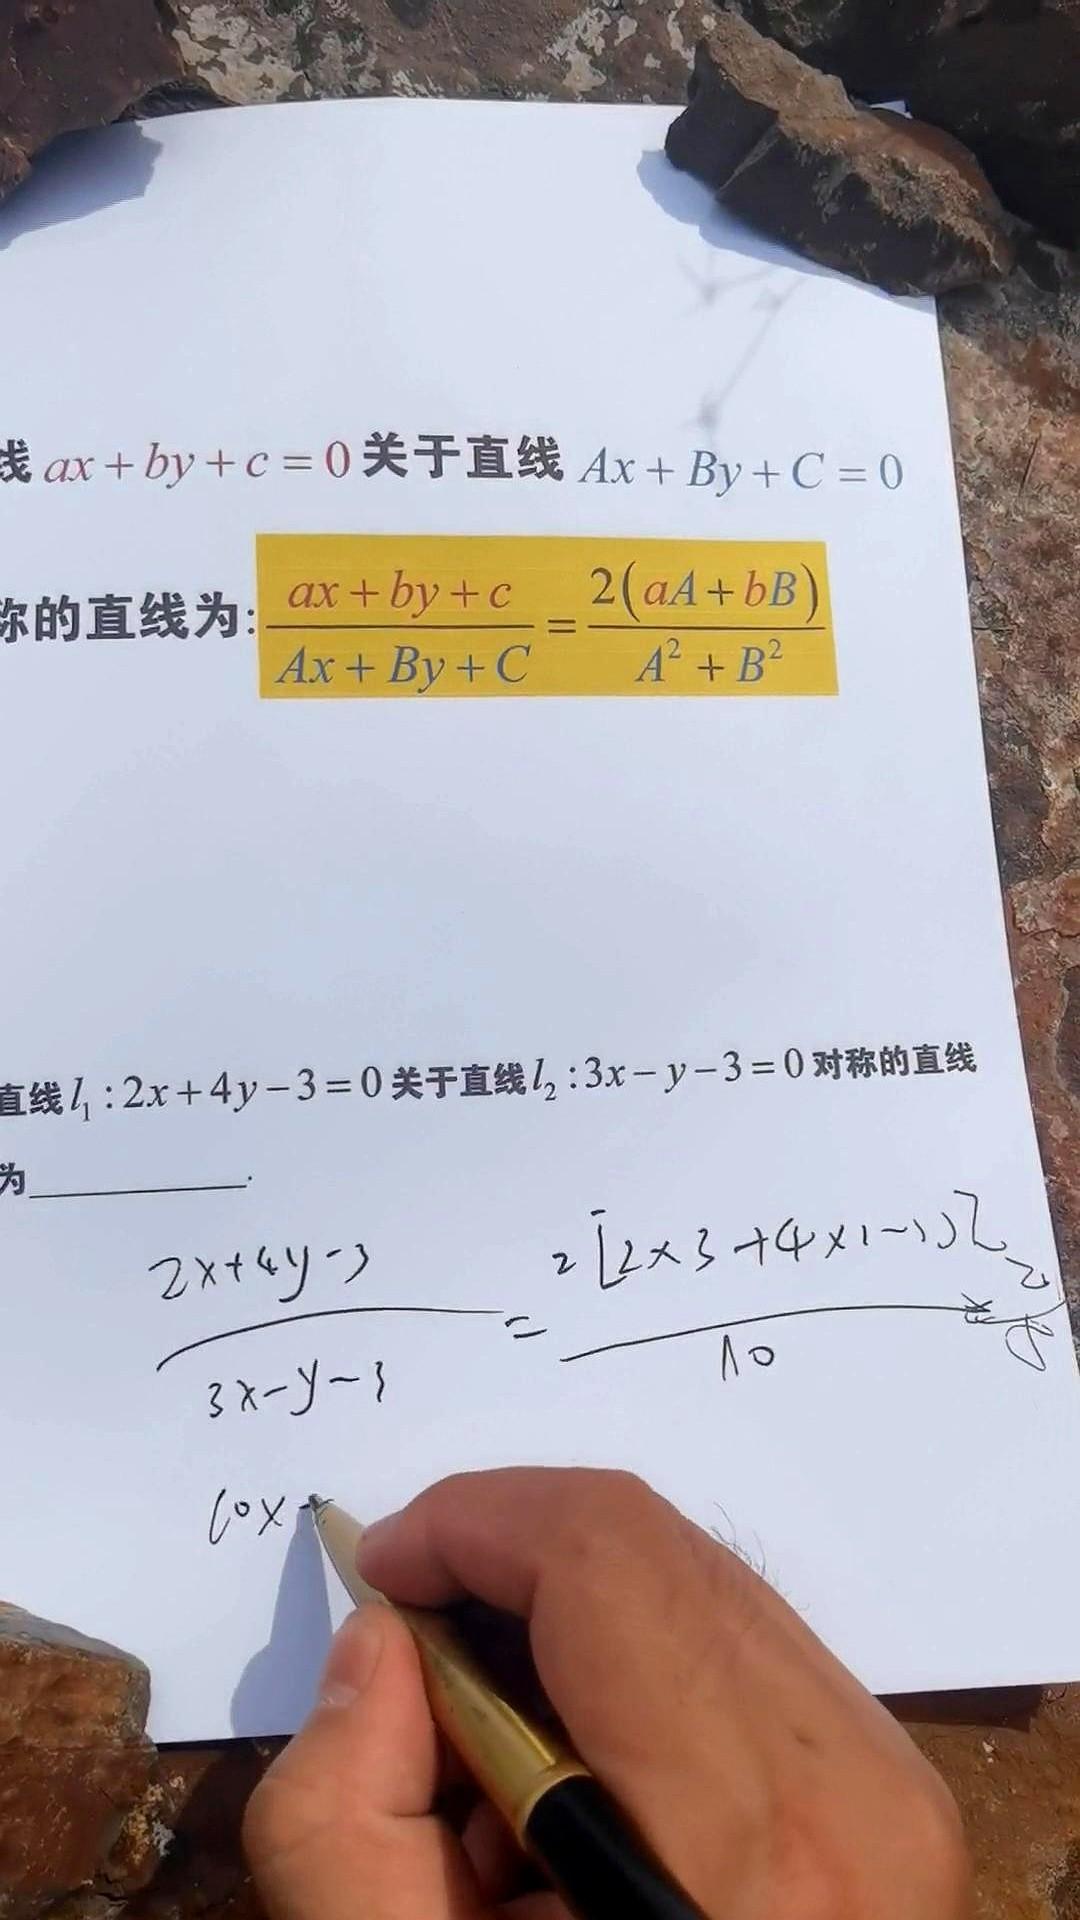 线 ax + by + c = 0 关于直线 Ax + By + C = 0
称的直线为: \frac{ax + by + c}{Ax + By + C} = \frac{2(aA + bB)}{A² + B²}
直线 l₁ : 2x + 4y − 3 = 0 关于直线 l₂ : 3x − y − 3 = 0 对称的直线
为________.
\frac{2x+4y-3}{3x-y-3} = \frac{2[2×3+4×(-1)]}{10}
10x